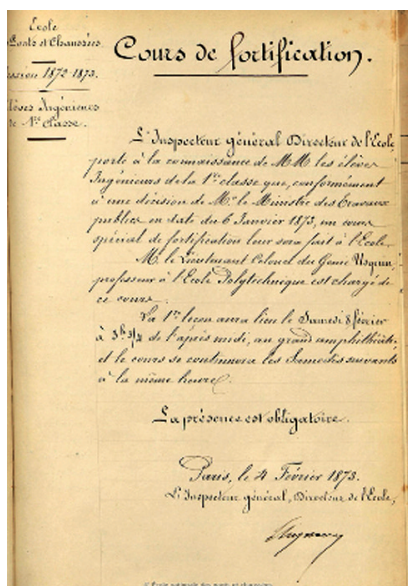 École
Ponts et Chaussées
ession 1872-1873.
lèves Ingénieurs
de 1re Classe.
Cours de fortification.
L'Inspecteur général Directeur de l'Ecole
porte à la connaissance de MM les élèves
Ingénieurs de la 1re classe que, conformément
à une décision de Mr. le Ministre des Travaux
publics en date du 6 Janvier 1873, un cours
spécial de fortification leur sera fait à l'Ecole.
M. le Lieutenant Colonel du Génie
professeur à l'Ecole Polytechnique est chargé de
ce cours.
La 1re leçon aura lieu le Samedi 8 février
à 3h 3/4 de l'après midi, au grand amphithéâtre
et le cours se continuera les Samedis suivants
à la même heure.
La présence est obligatoire.
Paris, le 4 Février 1873.
L'Inspecteur général, Directeur de l'Ecole,